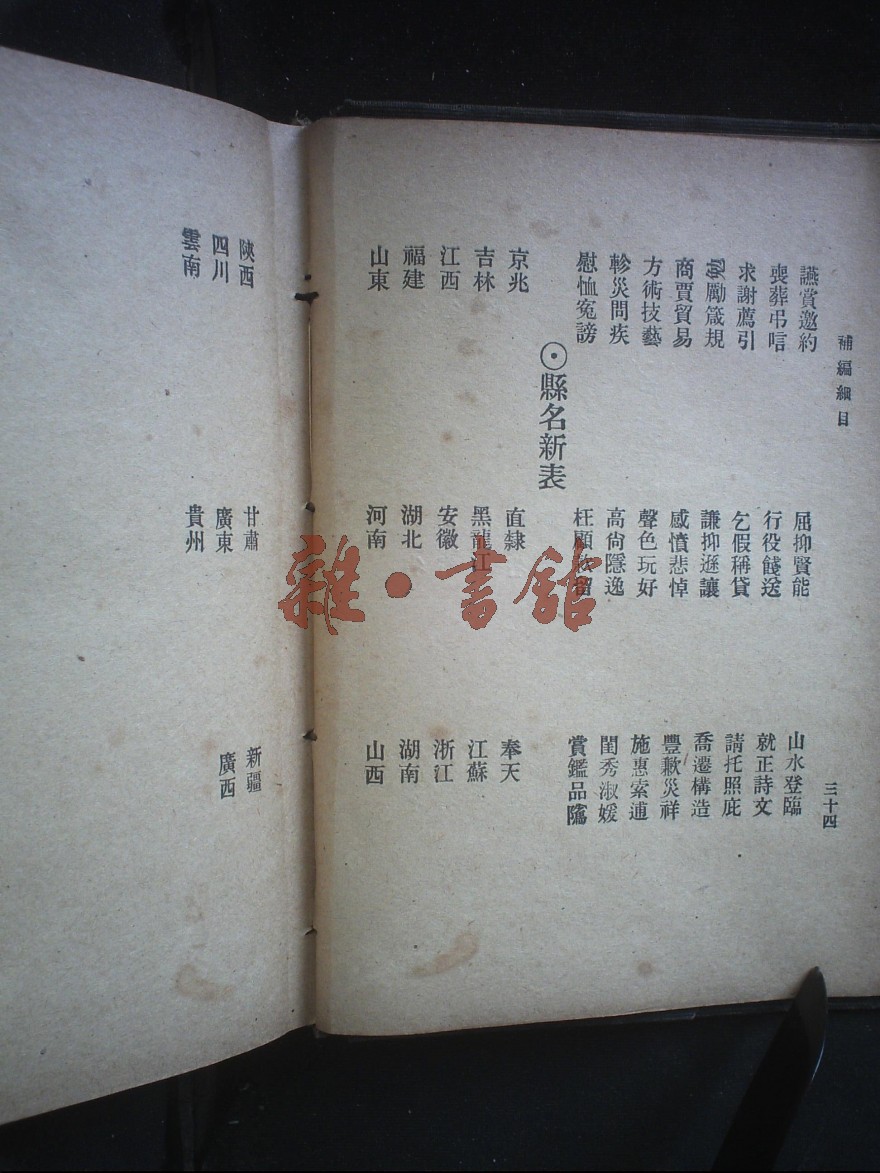 補編細目
三十四
讌賞邀約
屈抑賢能
山水登臨
喪葬弔唁
行役餞送
就正詩文
求謝薦引
乞假稱貸
請托照庇
勉勵箴規
謙抑遜讓
喬遷構造
商賈貿易
感憤悲悼
豐歉災祥
方術技藝
聲色玩好
施惠索逋
軫災問疾
高尙隱逸
閨秀淑媛
慰恤冤謗
枉顧 留
賞鑑品
⊙縣名新表
京兆
直隸
奉天
吉林
黑龍江
江蘇
江西
安徽
浙江
福建
湖北
湖南
山東
河南
山西
陝西
甘肅
新疆
四川
廣東
廣西
雲南
貴州
雜·書館